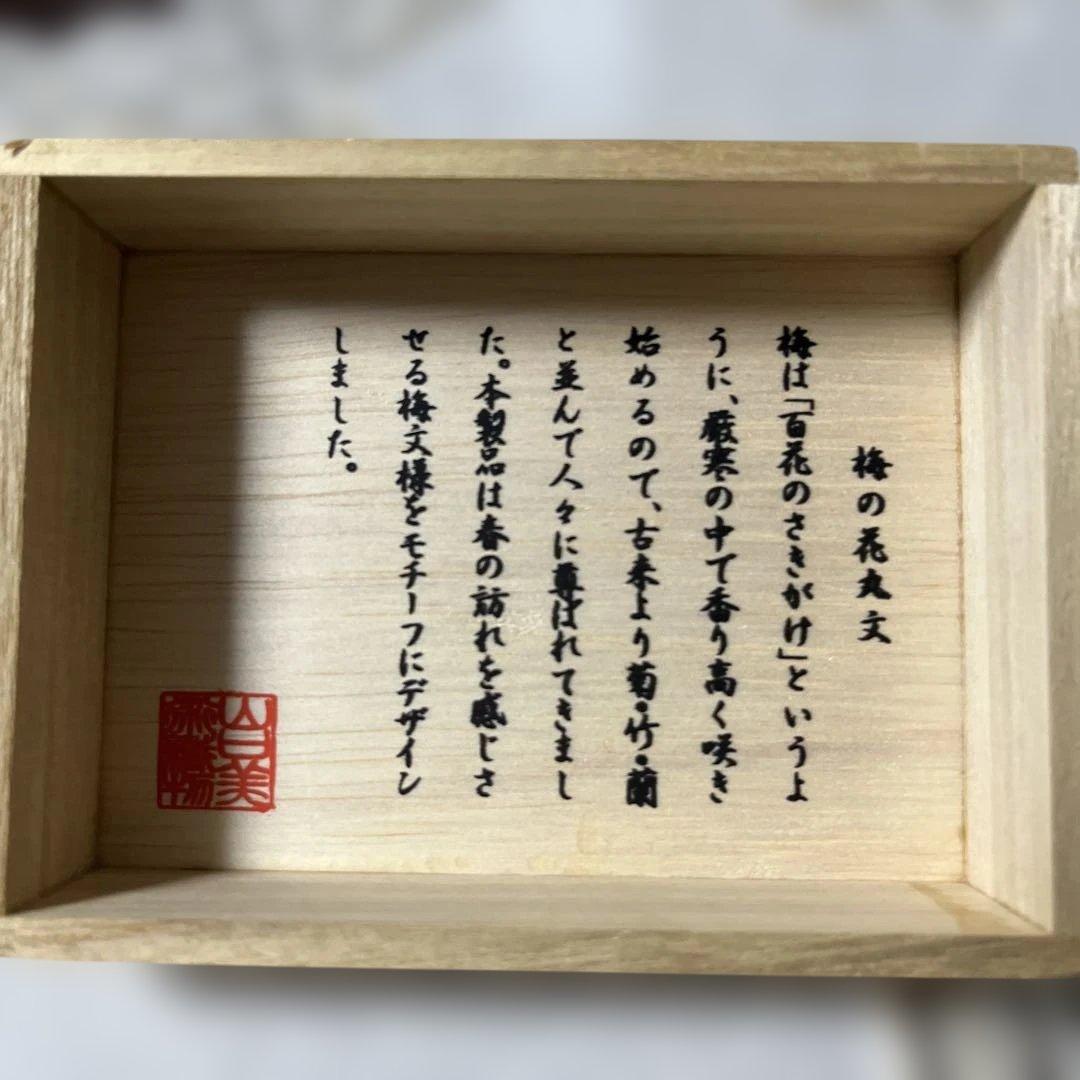 梅の花丸文
梅は「百花のさきがけ」というよ
うに、厳寒の中で香り高く咲き
始めるので、古来より菊・竹・蘭
と並んで人々に尊ばれてきまし
た。本製品は春の訪れを感じさ
せる梅文様をモチーフにデザイン
しました。